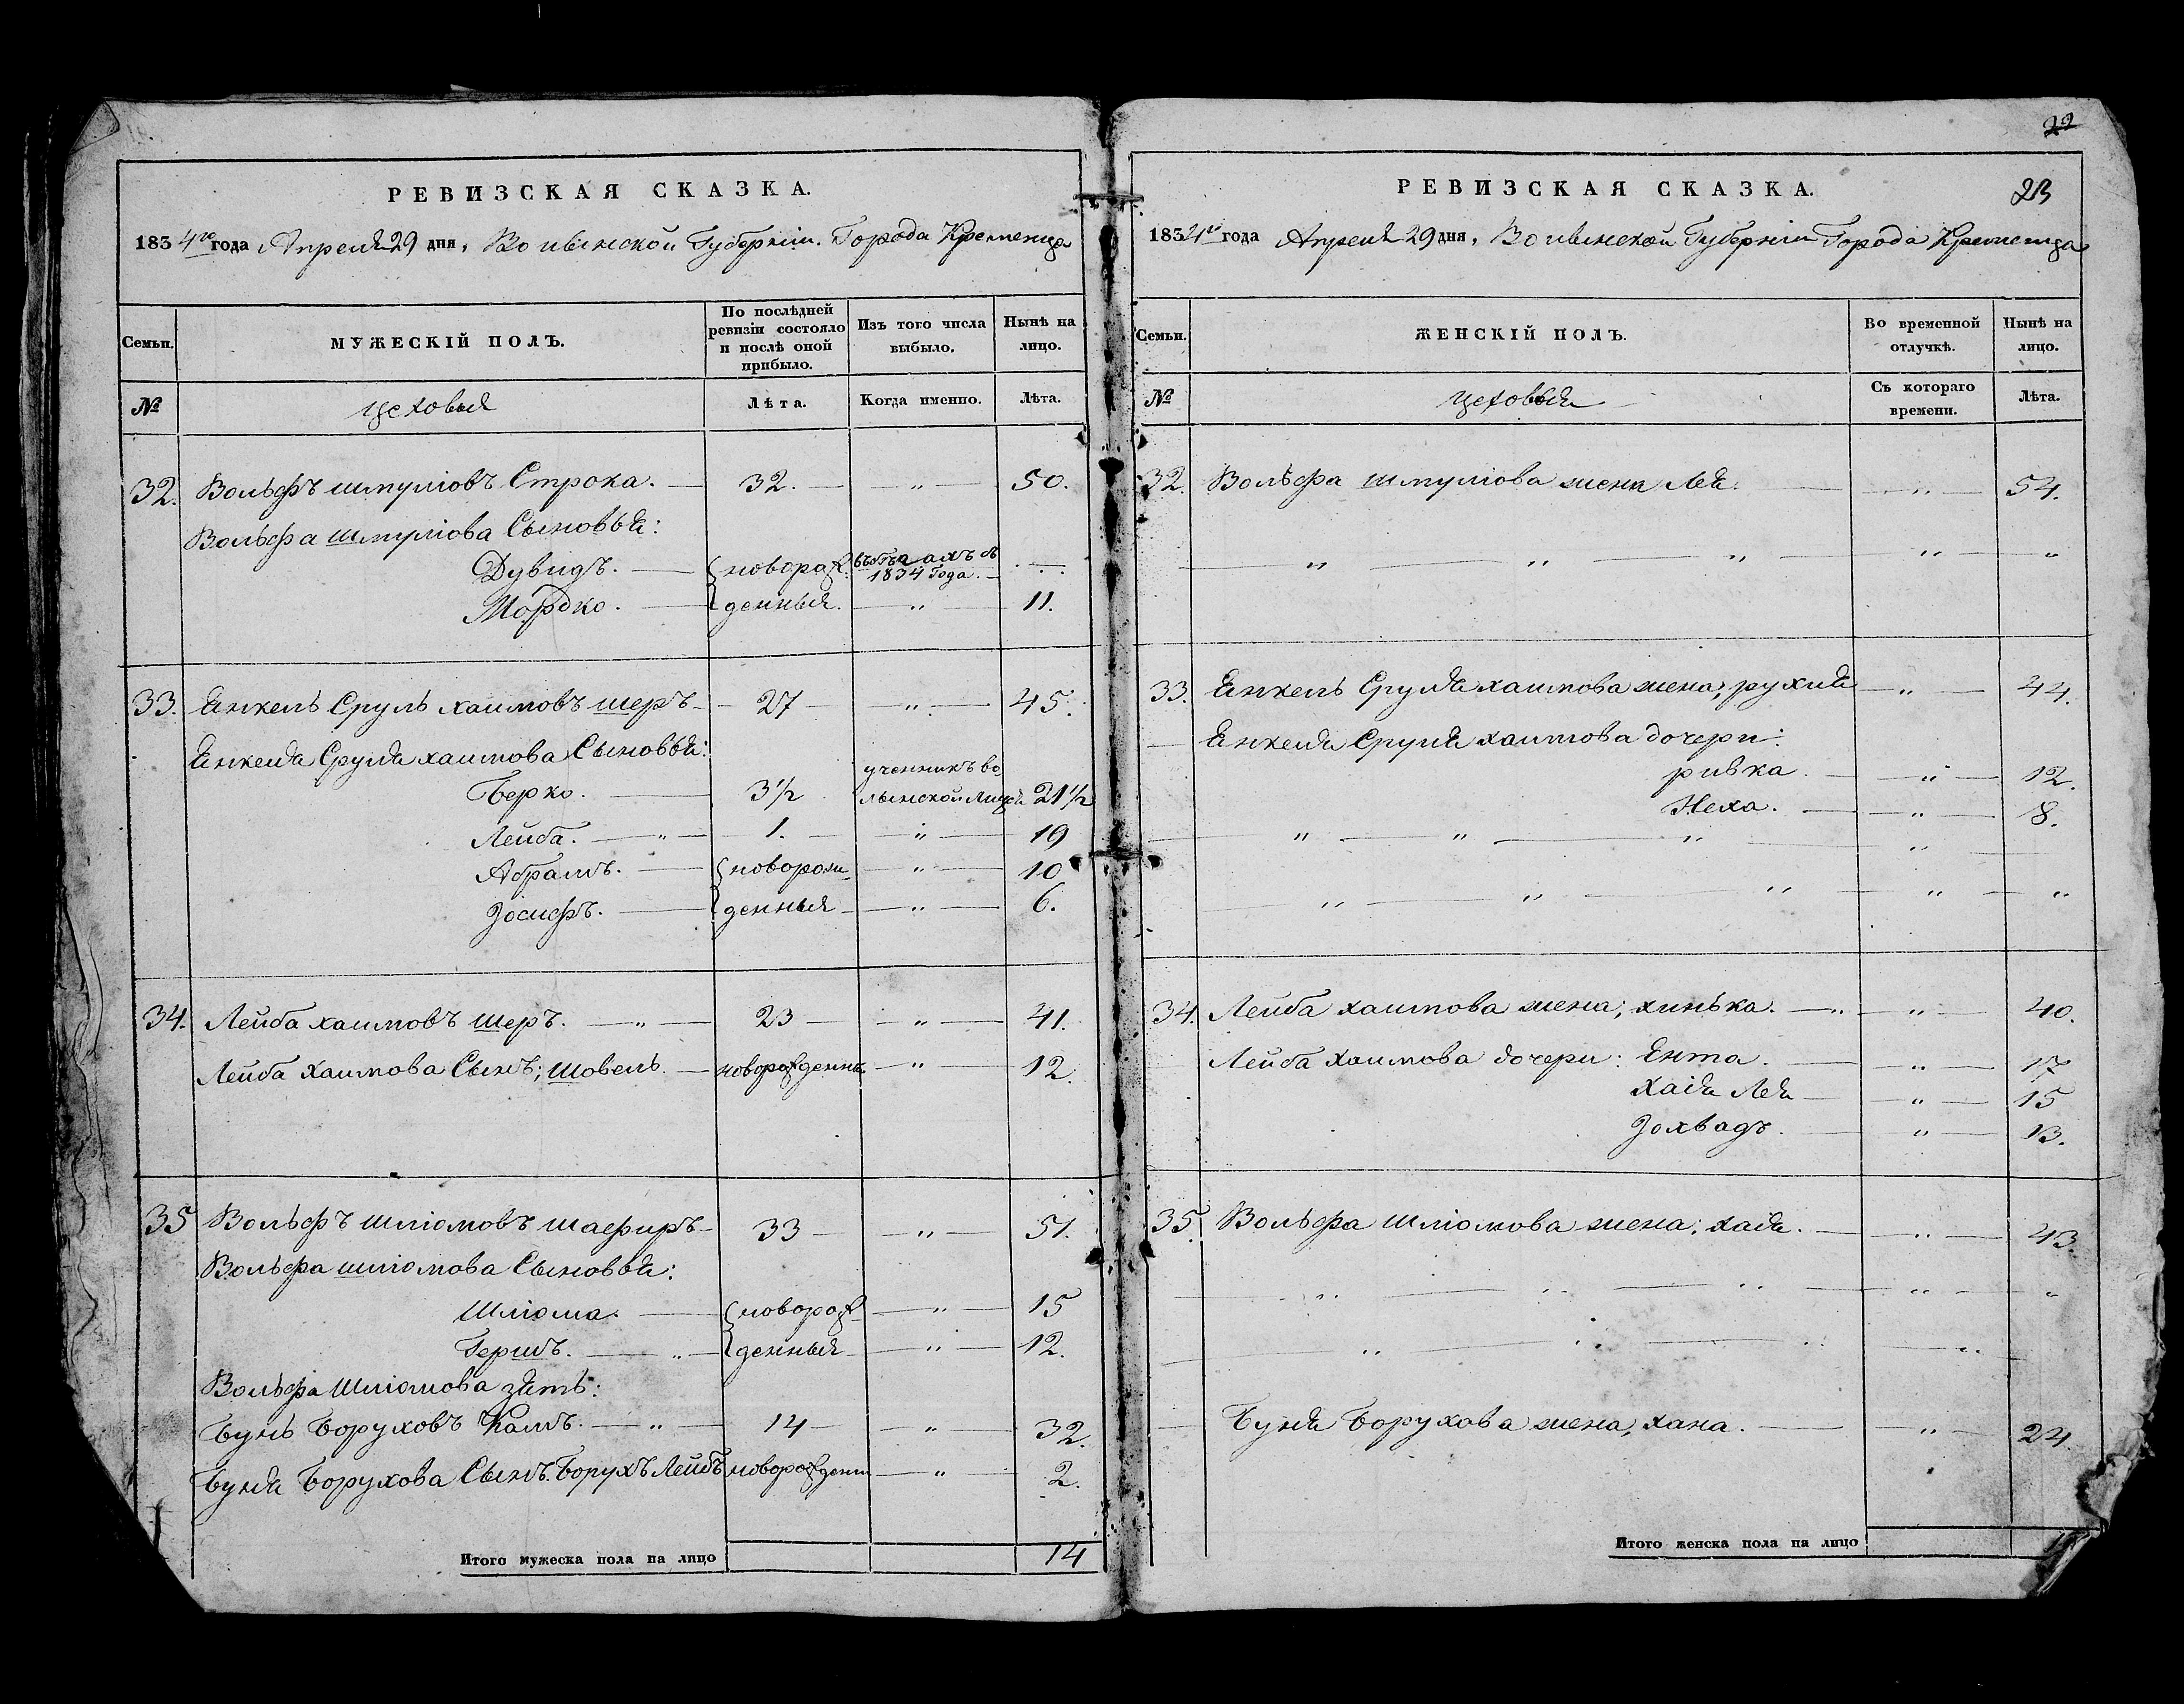 22
23
РЕВИЗСКАЯ СКАЗКА.
1834го года Апреля 29 дня, Волынской Губерніи. Города Кременца
Семьи.
МУЖЕСКІЙ ПОЛЪ.
По послѣдней ревизіи состояло и послѣ оной прибыло.
Изъ того числа выбыло.
Нынѣ на лицо.
№
цеховыя
Лѣта.
Когда именно.
Лѣта.
32. Вольфъ шмуліовъ Строка. 32. „ 50.
Вольфа шмуліова Сыновья:
Дувидъ. новорож 1834 Года.
Мордко. денныя. „ 11.
33. Янкель Сруль хаимовъ шеръ 27 „ 45.
Янкеля Сруля хаимова Сыновья:
Берко. 3½ ученикъ во лынской 21½
Лейба. „ 1. „ 19
Абрамъ. новорож „ 10
Іосифъ. денныя „ 6.
34. Лейба хаимовъ шеръ. „ 23 „ 41.
Лейба Хаимова Сынъ; Шовель. новорожденны. „ 12.
35 Вольфъ шліомовъ шафиръ 33 „ 51.
Вольфа шліомова Сыновья:
Шліома. новорож „ 15
Гершъ. „ денныя „ 12.
Вольфа Шліомова зять:
Бунь Боруховъ Камъ. „ 14 „ 32.
Буня Борухова Сынъ. Борухъ Лейбъ новорожден „ 2.
Итого мужеска пола на лицо 14
РЕВИЗСКАЯ СКАЗКА.
1834го года Апреля 29 дня, Волынской Губерніи Города Кременца
Семьи.
ЖЕНСКІЙ ПОЛЪ.
Во временной отлучкѣ.
Нынѣ на лицо.
№
цеховыя
Съ котораго времени.
Лѣта.
32. Вольфа шмуліова жена Лея. „ 54.
„ „ „ „ „
33. Янкель Сруля хаимова жена, рухля „ 44.
Янкеля Сруля хаимова дочери:
ривка. „ 12.
Неха. „ 8.
„ „ „ „
„ „ „ „ „
34. Лейба хаимова жена; хинька. „ „ 40.
Лейба хаимова дочери: Ента. „ 17
Хая Лея „ 15
Іохвадъ. „ 13.
35. Вольфа шліомова жена; хая. „ 43.
„ „ „ „ „
„ „ „ „
Буня Борухова жена, хана. „ 24.
Итого женска пола на лицо